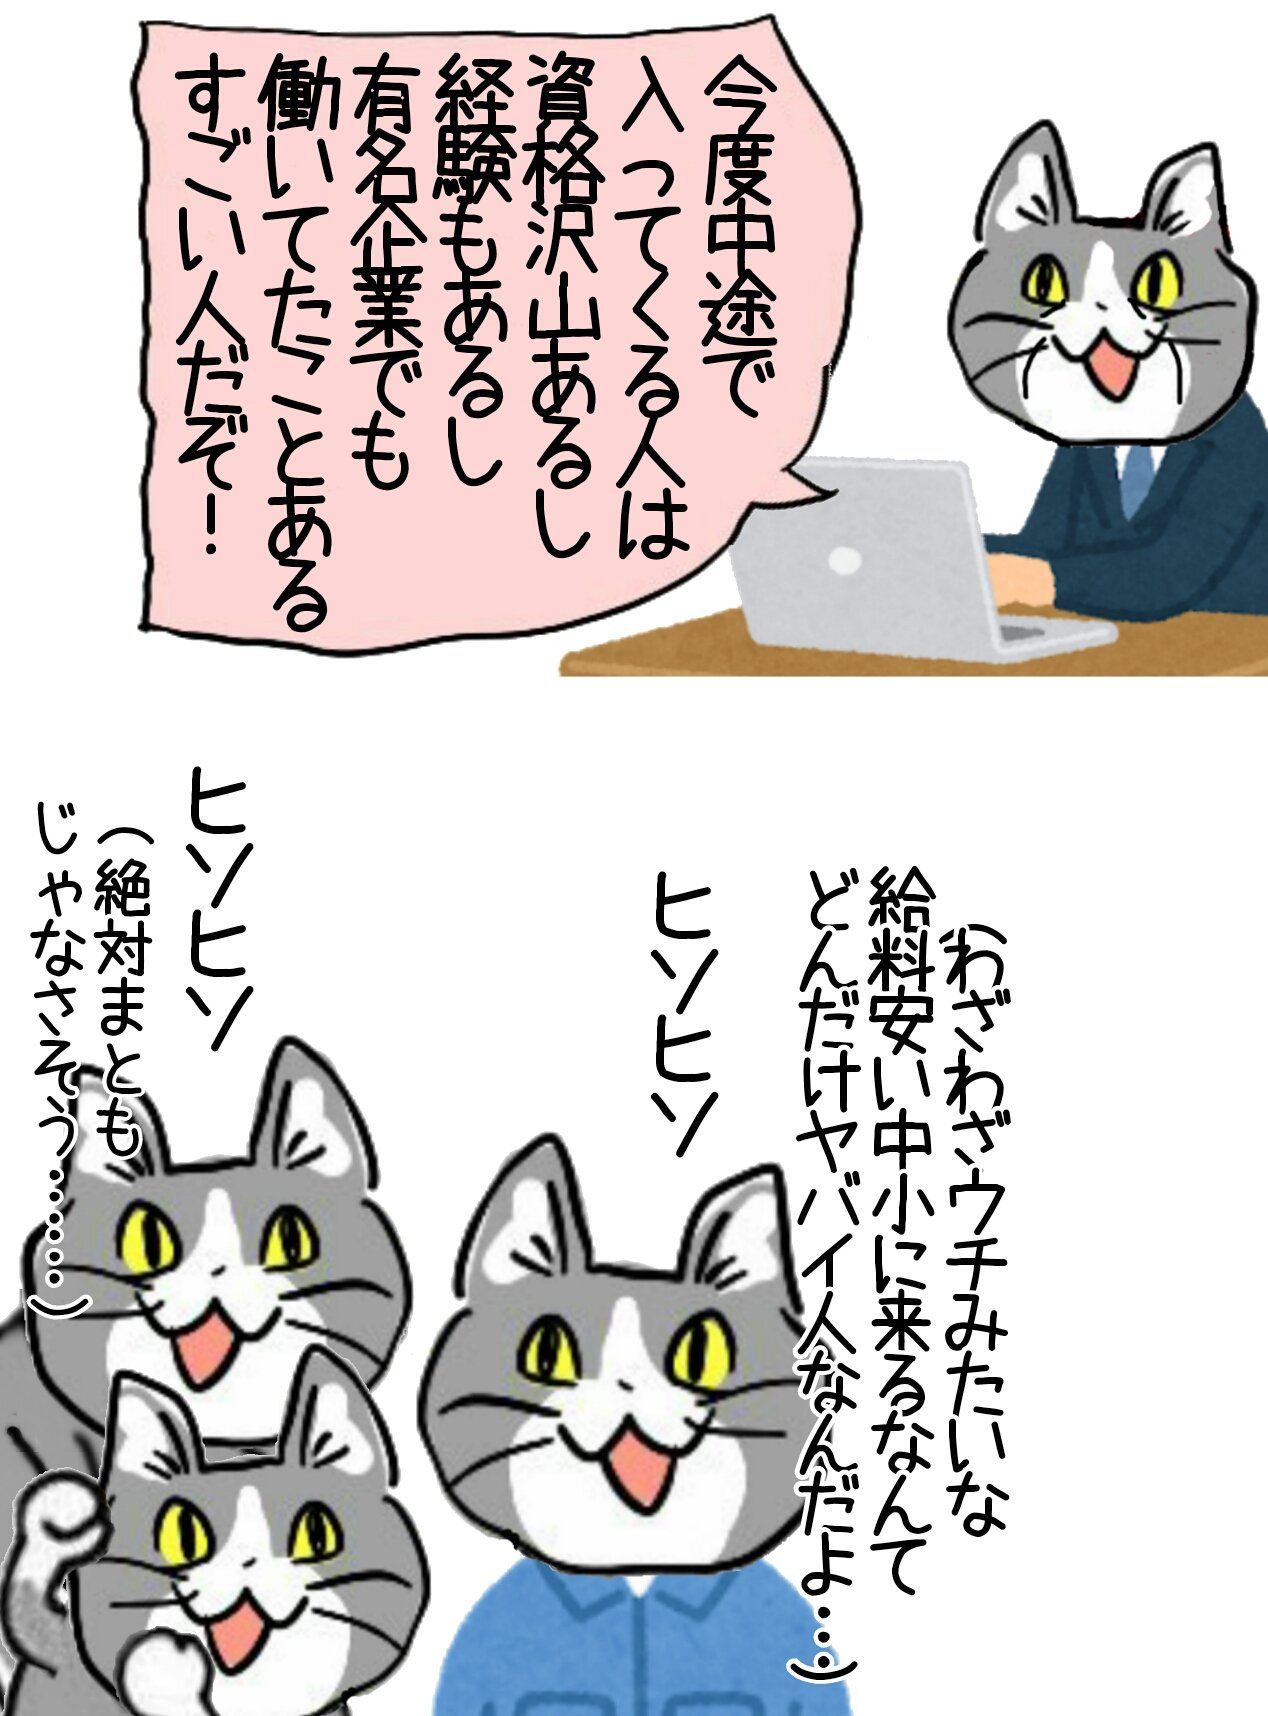 今度中途で
入ってくる人は
資格沢山あるし
経験もあるし
有名企業でも
働いてたことある
すごい人だぞ！
(わざわざウチみたいな
給料安い中小に来るなんて
どんだけヤバイ人なんだよ…)
ヒソヒソ
ヒソヒソ
(絶対まとも
じゃなさそう……)